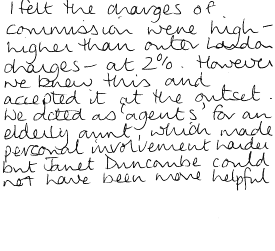 I felt the charges of
commission were high -
higher than outer London
charges - at 2%. However
we knew this and
accepted it at the outset.
We acted as 'agents' for an
elderly aunt, which made
personal involvement harder
but Janet Duncombe could
not have been more helpful